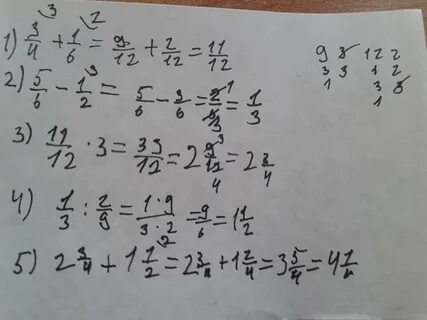 1) 3/4 + 1/6 = 9/12 + 2/12 = 11/12
2) 5/6 - 1/2 = 5/6 - 3/6 = 2/6 = 1/3
3) 11/12 · 3 = 33/12 = 2 9/12 = 2 3/4
4) 1/3 : 2/9 = 1·9/3·2 = 9/6 = 1 1/2
5) 2 3/4 + 1 1/2 = 2 3/4 + 1 2/4 = 3 5/4 = 4 1/4